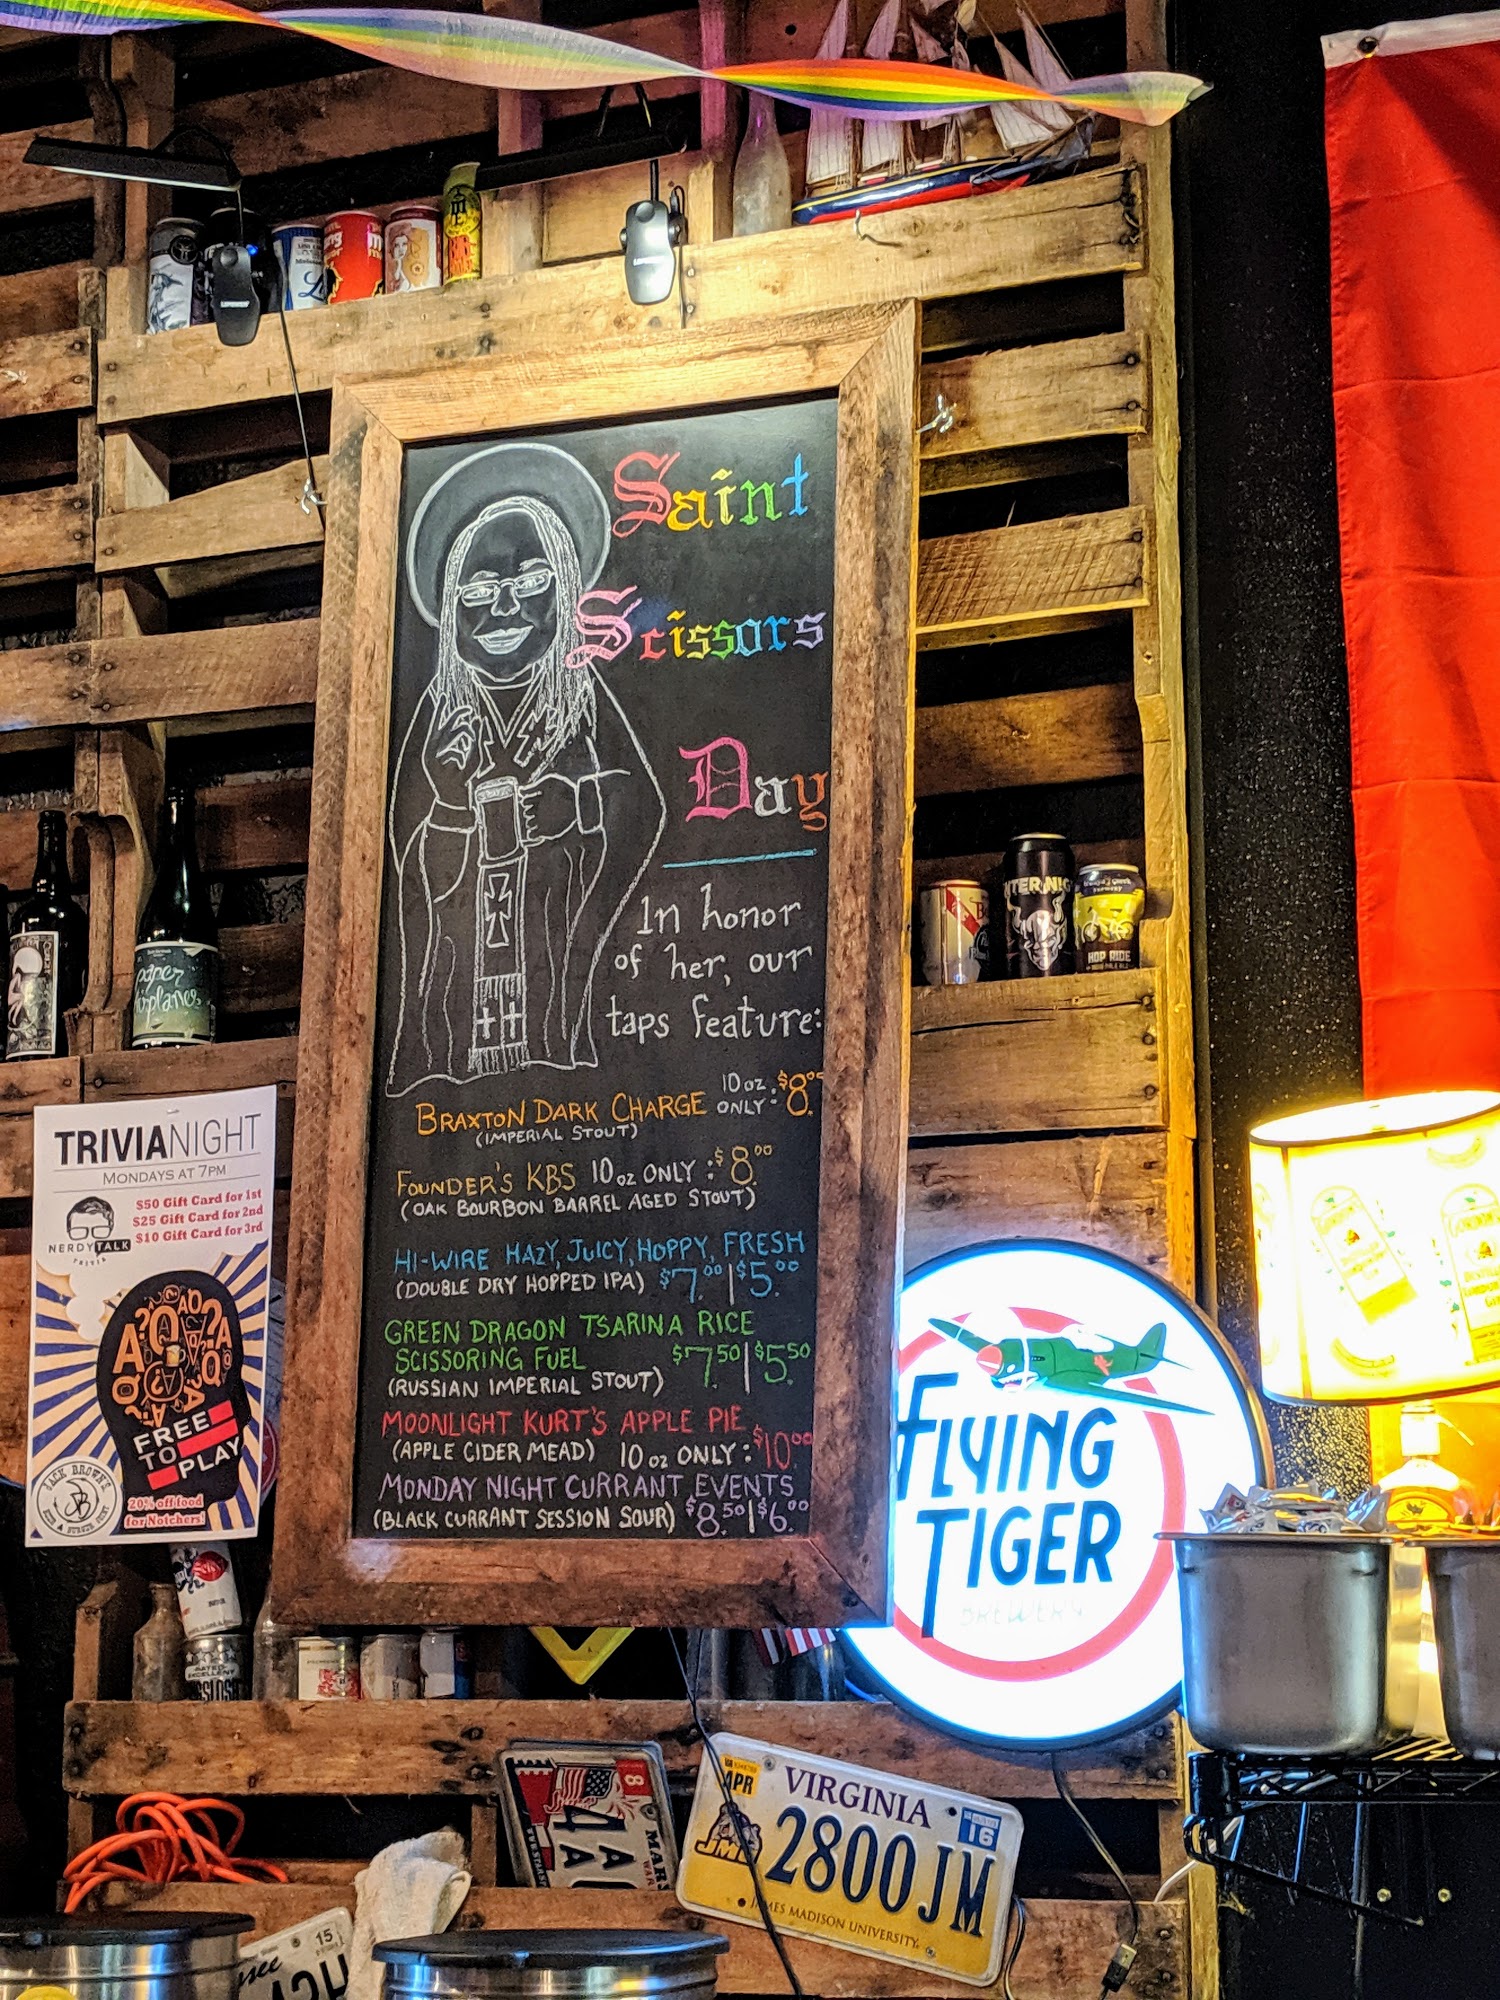 Saint
Scissors
Day
In honor
of her, our
taps feature:
BRAXTON DARK CHARGE 10 oz ONLY: $8.00
(IMPERIAL STOUT)
FOUNDER'S KBS 10 oz ONLY: $8.00
(OAK BOURBON BARREL AGED STOUT)
HI-WIRE HAZY, JUICY, HOPPY, FRESH
(DOUBLE DRY HOPPED IPA) $7.00 | $5.00
GREEN DRAGON TSARINA RICE
SCISSORING FUEL $7.50 | $5.50
(RUSSIAN IMPERIAL STOUT)
MOONLIGHT KURT'S APPLE PIE
(APPLE CIDER MEAD) 10 oz ONLY: $10.00
MONDAY NIGHT CURRANT EVENTS
(BLACK CURRANT SESSION SOUR) $8.50 | $6.00
TRIVIANIGHT
MONDAYS AT 7PM
$50 Gift Card for 1st
$25 Gift Card for 2nd
$10 Gift Card for 3rd
NERDYTALK
TRIVIA
FREE
TO
PLAY
JACK BROWN'S
BEER & BURGER JOINT
JB
20% off food
for Notchers!
paper
HOP RIDE
FLYING
TIGER
BREWERY
APR
VIRGINIA
16
JMU
2800JM
JAMES MADISON UNIVERSITY
8
15